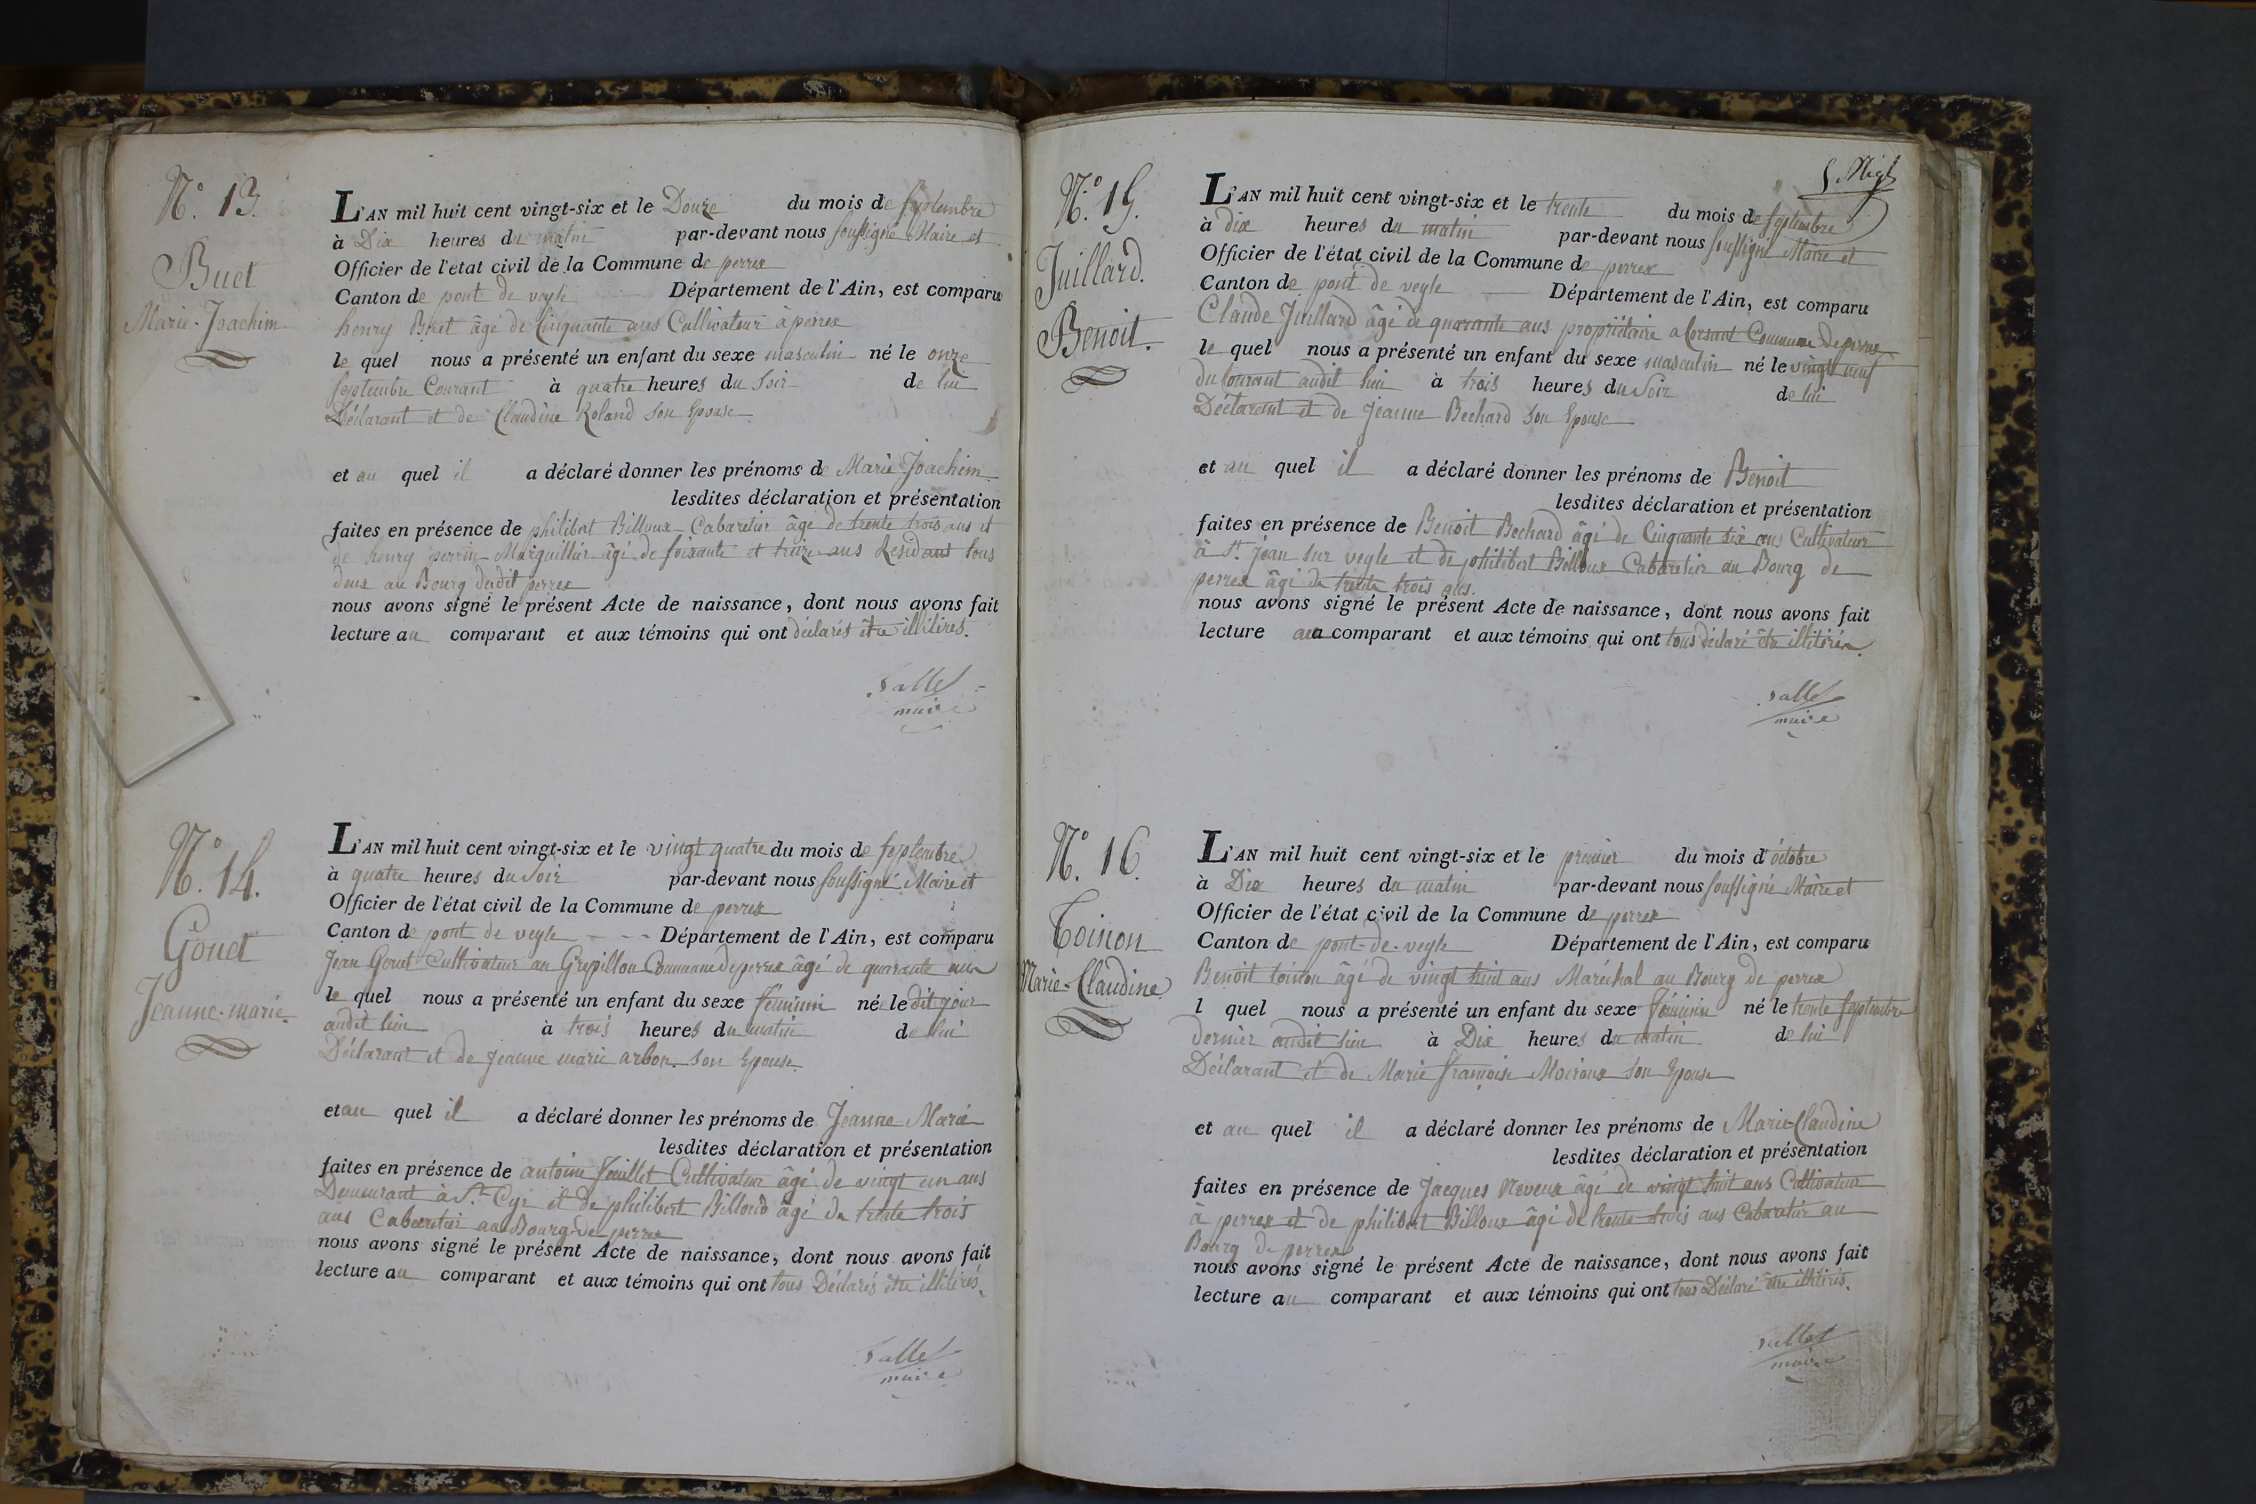 N.° 13.
Buet
Marie-Joachim
L'AN mil huit cent vingt-six et le Douze du mois de septembre
à Dix heures du matin par-devant nous soussigné Maire et
Officier de l'état civil de la Commune de perrex
Canton de pont de veyle Département de l'Ain, est comparu
henry Buet âgé de Cinquante ans Cultivateur à perrex
le quel nous a présenté un enfant du sexe masculin né le onze
septembre Courant à quatre heures du Soir de lui
Déclarant et de Claudine Roland son Epouse
et au quel il a déclaré donner les prénoms de Marie Joachim
lesdites déclaration et présentation
faites en présence de philibert Billoux Cabaretier âgé de trente trois ans et
de henry perrin Marguillier âgé de soixante et treize ans Residant tous
deux au Bourg dudit perrex
nous avons signé le présent Acte de naissance, dont nous avons fait
lecture au comparant et aux témoins qui ont déclarés être illitirés.
Vallet
maire
N.° 14.
Gouet
Jeanne-marie
L'AN mil huit cent vingt-six et le vingt quatre du mois de septembre
à quatre heures du Soir par-devant nous soussigné Maire et
Officier de l'état civil de la Commune de perrex
Canton de pont de veyle Département de l'Ain, est comparu
Jean Gouet Cultivateur au Grepillon Commune de perrex âgé de quarante
le quel nous a présenté un enfant du sexe féminin né le dit jour
audit lieu à trois heures du matin de lui
Déclarant et de Jeanne marie arbon son Epouse
et au quel il a déclaré donner les prénoms de Jeanne Marie
lesdites déclaration et présentation
faites en présence de antoine feuillet Cultivateur âgé de vingt un ans
Demeurant à St. Cyr et de philibert Billoud âgé de trente trois
ans Cabaretier au Bourg de perrex
nous avons signé le présent Acte de naissance, dont nous avons fait
lecture au comparant et aux témoins qui ont tous Déclarés être illitirés.
Vallet
maire
N.° 15.
Juillard.
Benoit.
L'AN mil huit cent vingt-six et le trente du mois de septembre
à dix heures du matin par-devant nous soussigné Maire et
Officier de l'état civil de la Commune de perrex
Canton de pont de veyle Département de l'Ain, est comparu
Claude Juillard âgé de quarante ans propriétaire a Corsant Commune de perrex
le quel nous a présenté un enfant du sexe masculin né le vingt neuf
du Courant audit lieu à trois heures du Soir de lui
Déclarant et de Jeanne Bechard son Epouse
et au quel il a déclaré donner les prénoms de Benoit
lesdites déclaration et présentation
faites en présence de Benoit Bechard âgé de Cinquante six ans Cultivateur
à St. jean sur veyle et de philibert Billoux Cabaretier au Bourg de
perrex âgé de trente trois ans.
nous avons signé le présent Acte de naissance, dont nous avons fait
lecture au comparant et aux témoins qui ont tous déclaré être illitirés.
Vallet
maire
N.° 16.
Toinon
Marie-Claudine
L'AN mil huit cent vingt-six et le premier du mois d'octobre
à Dix heures du matin par-devant nous soussigné Maire et
Officier de l'état civil de la Commune de perrex
Canton de pont-de-veyle Département de l'Ain, est comparu
Benoit toinon âgé de vingt huit ans Maréchal au Bourg de perrex
l quel nous a présenté un enfant du sexe féminin né le trente septembre
dernier audit lieu à Dix heures du matin de lui
Déclarant et de Marie françoise Moiroux son Epouse
et au quel il a déclaré donner les prénoms de Marie-Claudine
lesdites déclaration et présentation
faites en présence de Jacques Neveux âgé de vingt huit ans Cultivateur
à perrex et de philibert Billoux âgé de trente trois ans Cabaretier au
Bourg de perrex
nous avons signé le présent Acte de naissance, dont nous avons fait
lecture au comparant et aux témoins qui ont tous Déclaré être illitirés.
Vallet
maire